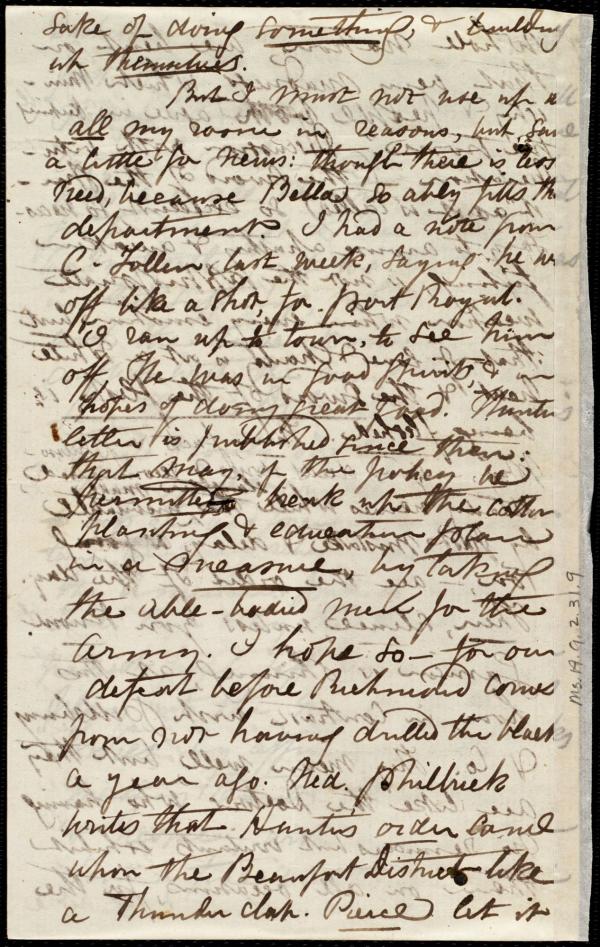 sake of doing something, & building
up themselves.
But I must not use up
all my room in reasons, but save
a little for news: though there is less
need, because Bella so ably fills th
department. I had a note from
C. Follen, last week, saying he w
off like a shot, for Port Royal.
I ran up to town, to see him
off. He was in good spirits, & in
hopes of doing great good. Hunter's
letter is published since then:
that may, if the policy be
permitted break up the cotton
planting & education plan
in a measure, by taking
the able-bodied men for the
army. I hope so - for our
defeat before Richmond comes
from not having drilled the black
a year ago. Ned. Philbrick
writes that Hunter's order came
upon the Beaufort District like
a Thunder clap. Pierce let it
Ms. A. 9. 2. 31. 9